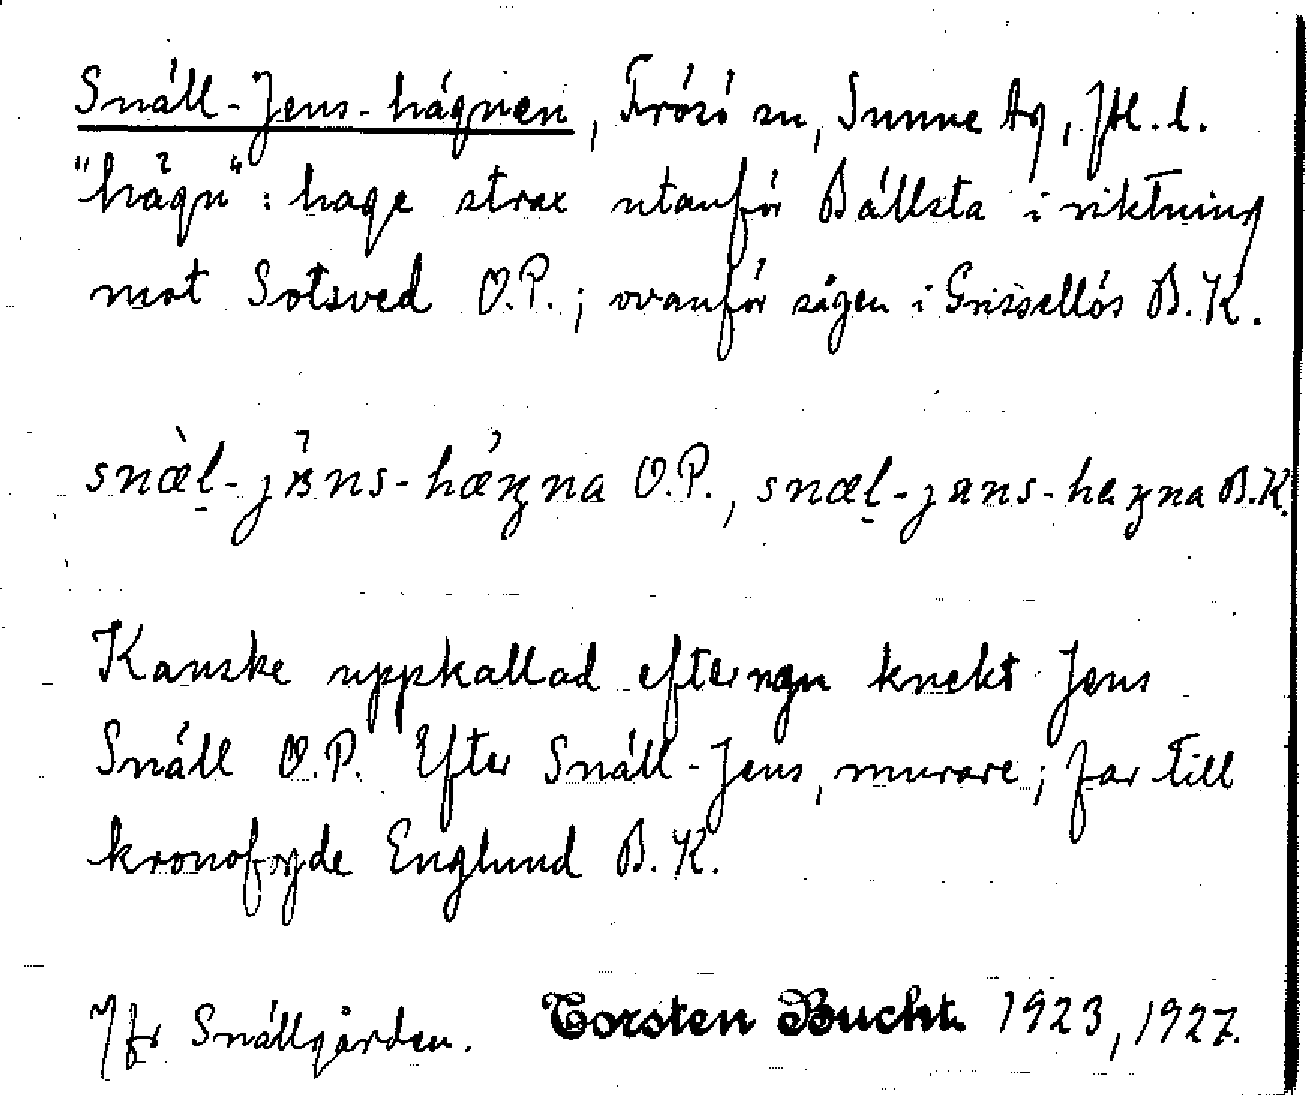 Snäll-Jens-hägnen, Frösö sn, Sunne tg, Jtl. l.
"hägn": hage strax utanför Bällsta i riktning
mot Sotsved O.P.; ovanför sågen i Grissellös B.K.
O.P., B.K.
Kanske uppkallad efter ngn knekt Jens
Snäll O.P. Efter Snäll-Jens, murare; far till
kronofogde Englund B.K.
Jfr Snällgården. Torsten Bucht. 1923, 1927.